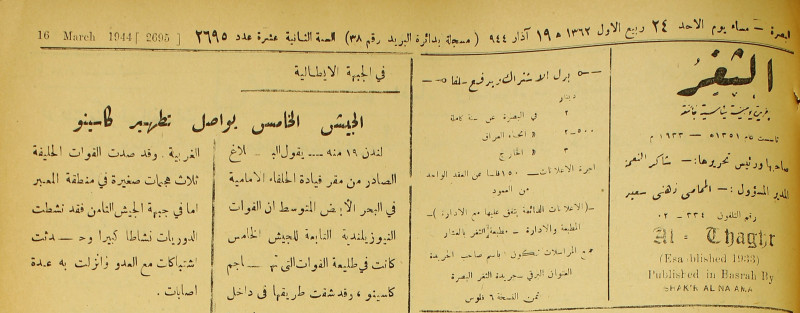 البصرة – مساء يوم الاحد ٢٤ ربيع الاول ١٣٦٢ ه ١٩ آذار ٩٤٤ ( مسجلة بدائرة البريد رقم ٣٨) السنة الثانية عشرة عدد ٢٦٩٥ 16 March 1944 [ 2695 ]
الثغر
جريدة يومية سياسية جامعة
تأسست عام ١٣٥١ ه — ١٩٣٣ م
صاحبها ورئيس تحريرها :— شاكر النعمة
المدير المسؤول :— المحامي
رقم التلفون ٣٣٤ — ٠٢
Al - Thaghr
(Esablished 1933)
Published in Basrah By
SHAKIR AL NAAMA
بدل الاشتراك ويدفع سلفا
دينار
٢ في البصرة عن سنة كاملة
٥٠٠—٢ » انحاء العراق
٣ » الخارج
اجرة الاعلانات — ١٥٠ فلسا عن العقد الواحد
من العمود
—( الاعلانات الدائمة يتفق عليها مع الادارة )—
المطبعة والادارة — مطبعة الثغر بالعشار
جميع المراسلات تكون باسم صاحب الجريدة
العنوان البرقي — جريدة الثغر البصرة
ثمن النسخة ٦ فلوس
في الجبهة الايطالية
الجيش الخامس يواصل تطهير كاسينو
لندن ١٩ منه — يقول البلاغ
الصادر من مقر قيادة الحلفاء الامامية
في البحر الابيض المتوسط ان القوات
النيوزيلندية التابعة للجيش الخامس
كانت في طليعة القوات التي تهاجم
كاسينو ، وقد شقت طريقها في داخل
الغربية . وقد صدت القوات الحليفة
ثلاث هجمات صغيرة في منطقة المعبر
اما في جبهة الجيش الثامن فقد نشطت
الدوريات نشاطا كبيرا وحدثت
اشتباكات مع العدو وانزلت به عدة
اصابات .